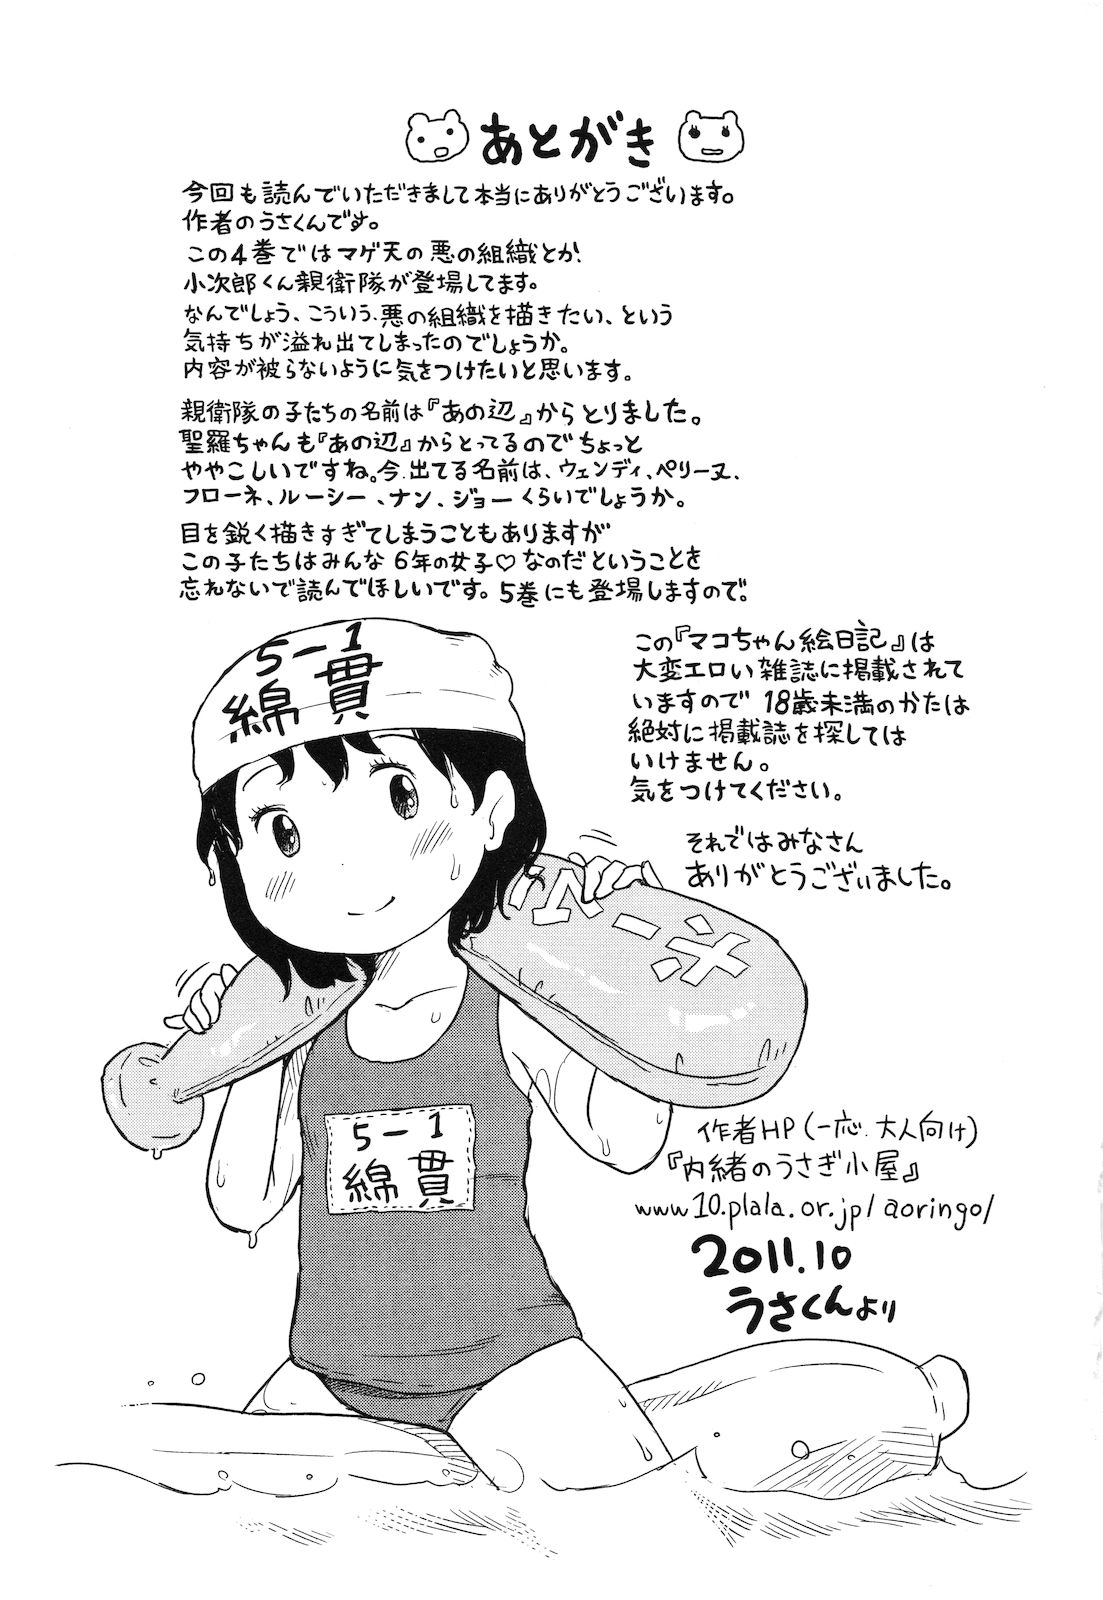 あとがき
今回も読んでいただきまして本当にありがとうございます。
作者のうさくんです。
この4巻ではマゲ天の悪の組織とか、
小次郎くん親衛隊が登場してます。
なんでしょう、こういう、悪の組織を描きたい、という
気持ちが溢れ出てしまったのでしょうか。
内容が被らないように気をつけたいと思います。
親衛隊の子たちの名前は『あの辺』からとりました。
聖羅ちゃんも『あの辺』からとってるのでちょっと
ややこしいですね。今、出てる名前は、ウェンディ、ペリーヌ、
フローネ、ルーシー、ナン、ジョーくらいでしょうか。
目を鋭く描きすぎてしまうこともありますが
この子たちはみんな6年の女子♡なのだということを
忘れないで読んでほしいです。5巻にも登場しますので。
この『マコちゃん絵日記』は
大変エロい雑誌に掲載されて
いますので18歳未満のかたは
絶対に掲載誌を探しては
いけません。
気をつけてください。
それではみなさん
ありがとうございました。
5-1
綿貫
5-1
綿貫
作者HP(一応、大人向け)
『内緒のうさぎ小屋』
www10.plala.or.jp/aoringo/
2011.10
うさくんより